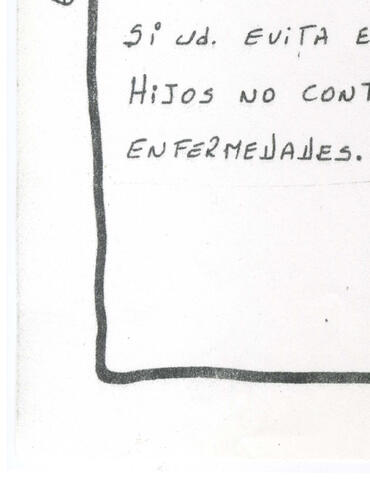 Si Ud. EVITA E
HIJOS NO CONT
ENFERMEDADES.